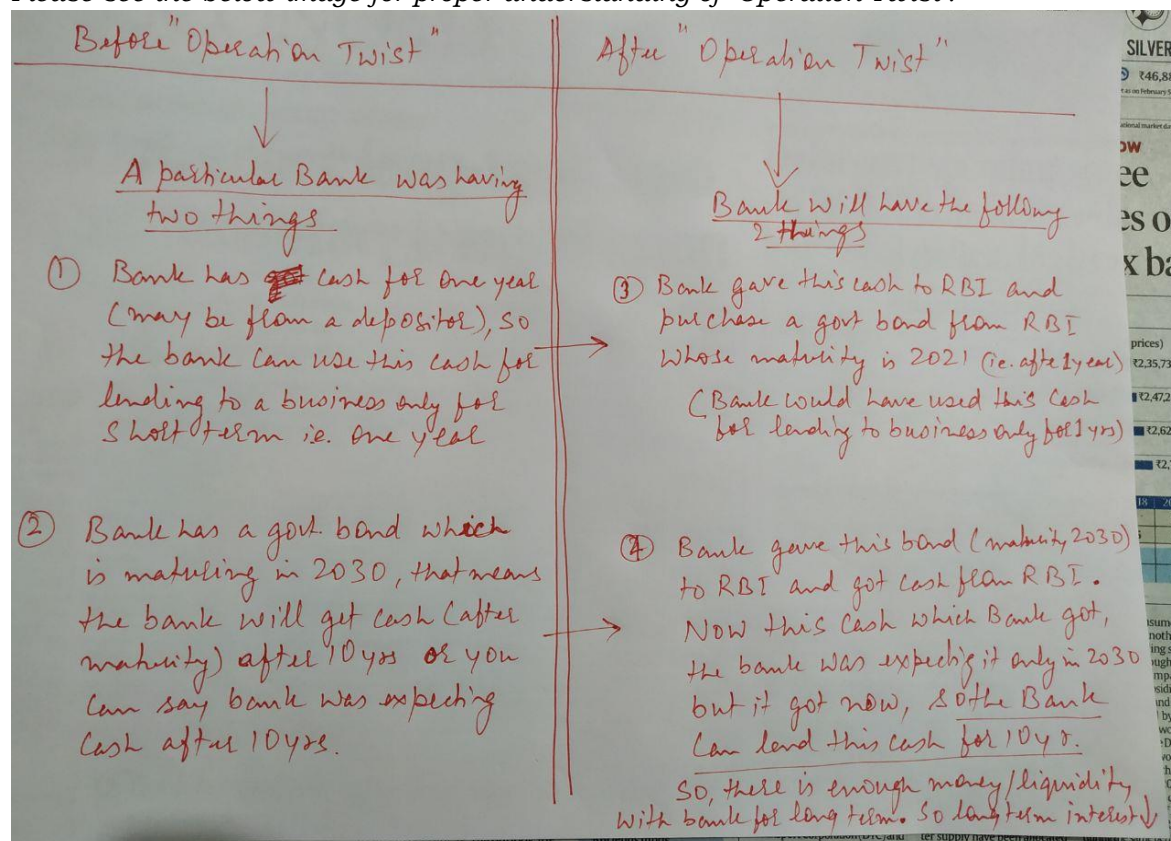 Please see the below image for proper understanding of "Operation Twist".
Before "Operation Twist"
A particular Bank was having
two things
① Bank has cash for one year
(may be from a depositor), so
the bank can use this cash for
lending to a business only for
short term i.e. one year
② Bank has a govt. bond which
is maturing in 2030, that means
the bank will get cash (after
maturity) after 10 yrs or you
can say bank was expecting
cash after 10 yrs.
After "Operation Twist"
Bank will have the following
2 things
③ Bank gave this cash to RBI and
purchase a govt bond from RBI
whose maturity is 2021 (i.e. after 1 year)
(Bank would have used this cash
for lending to business only for 1 yrs)
④ Bank gave this bond (maturity, 2030)
to RBI and got cash from RBI.
Now this cash which Bank got,
the bank was expectig it only in 2030
but it got now, so the Bank
can lend this cash for 10 yr.
So, there is enough money/liquidity
with bank for long term. So long term interest ↓
SILVER
₹46,88
ow
ee
es o
x ba
prices)
₹2,35,73
₹2,47,2
₹2,62
₹2,
18
ter supply have been allocated